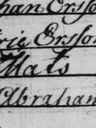 han Ersso
Ersso
Mats
Abraham